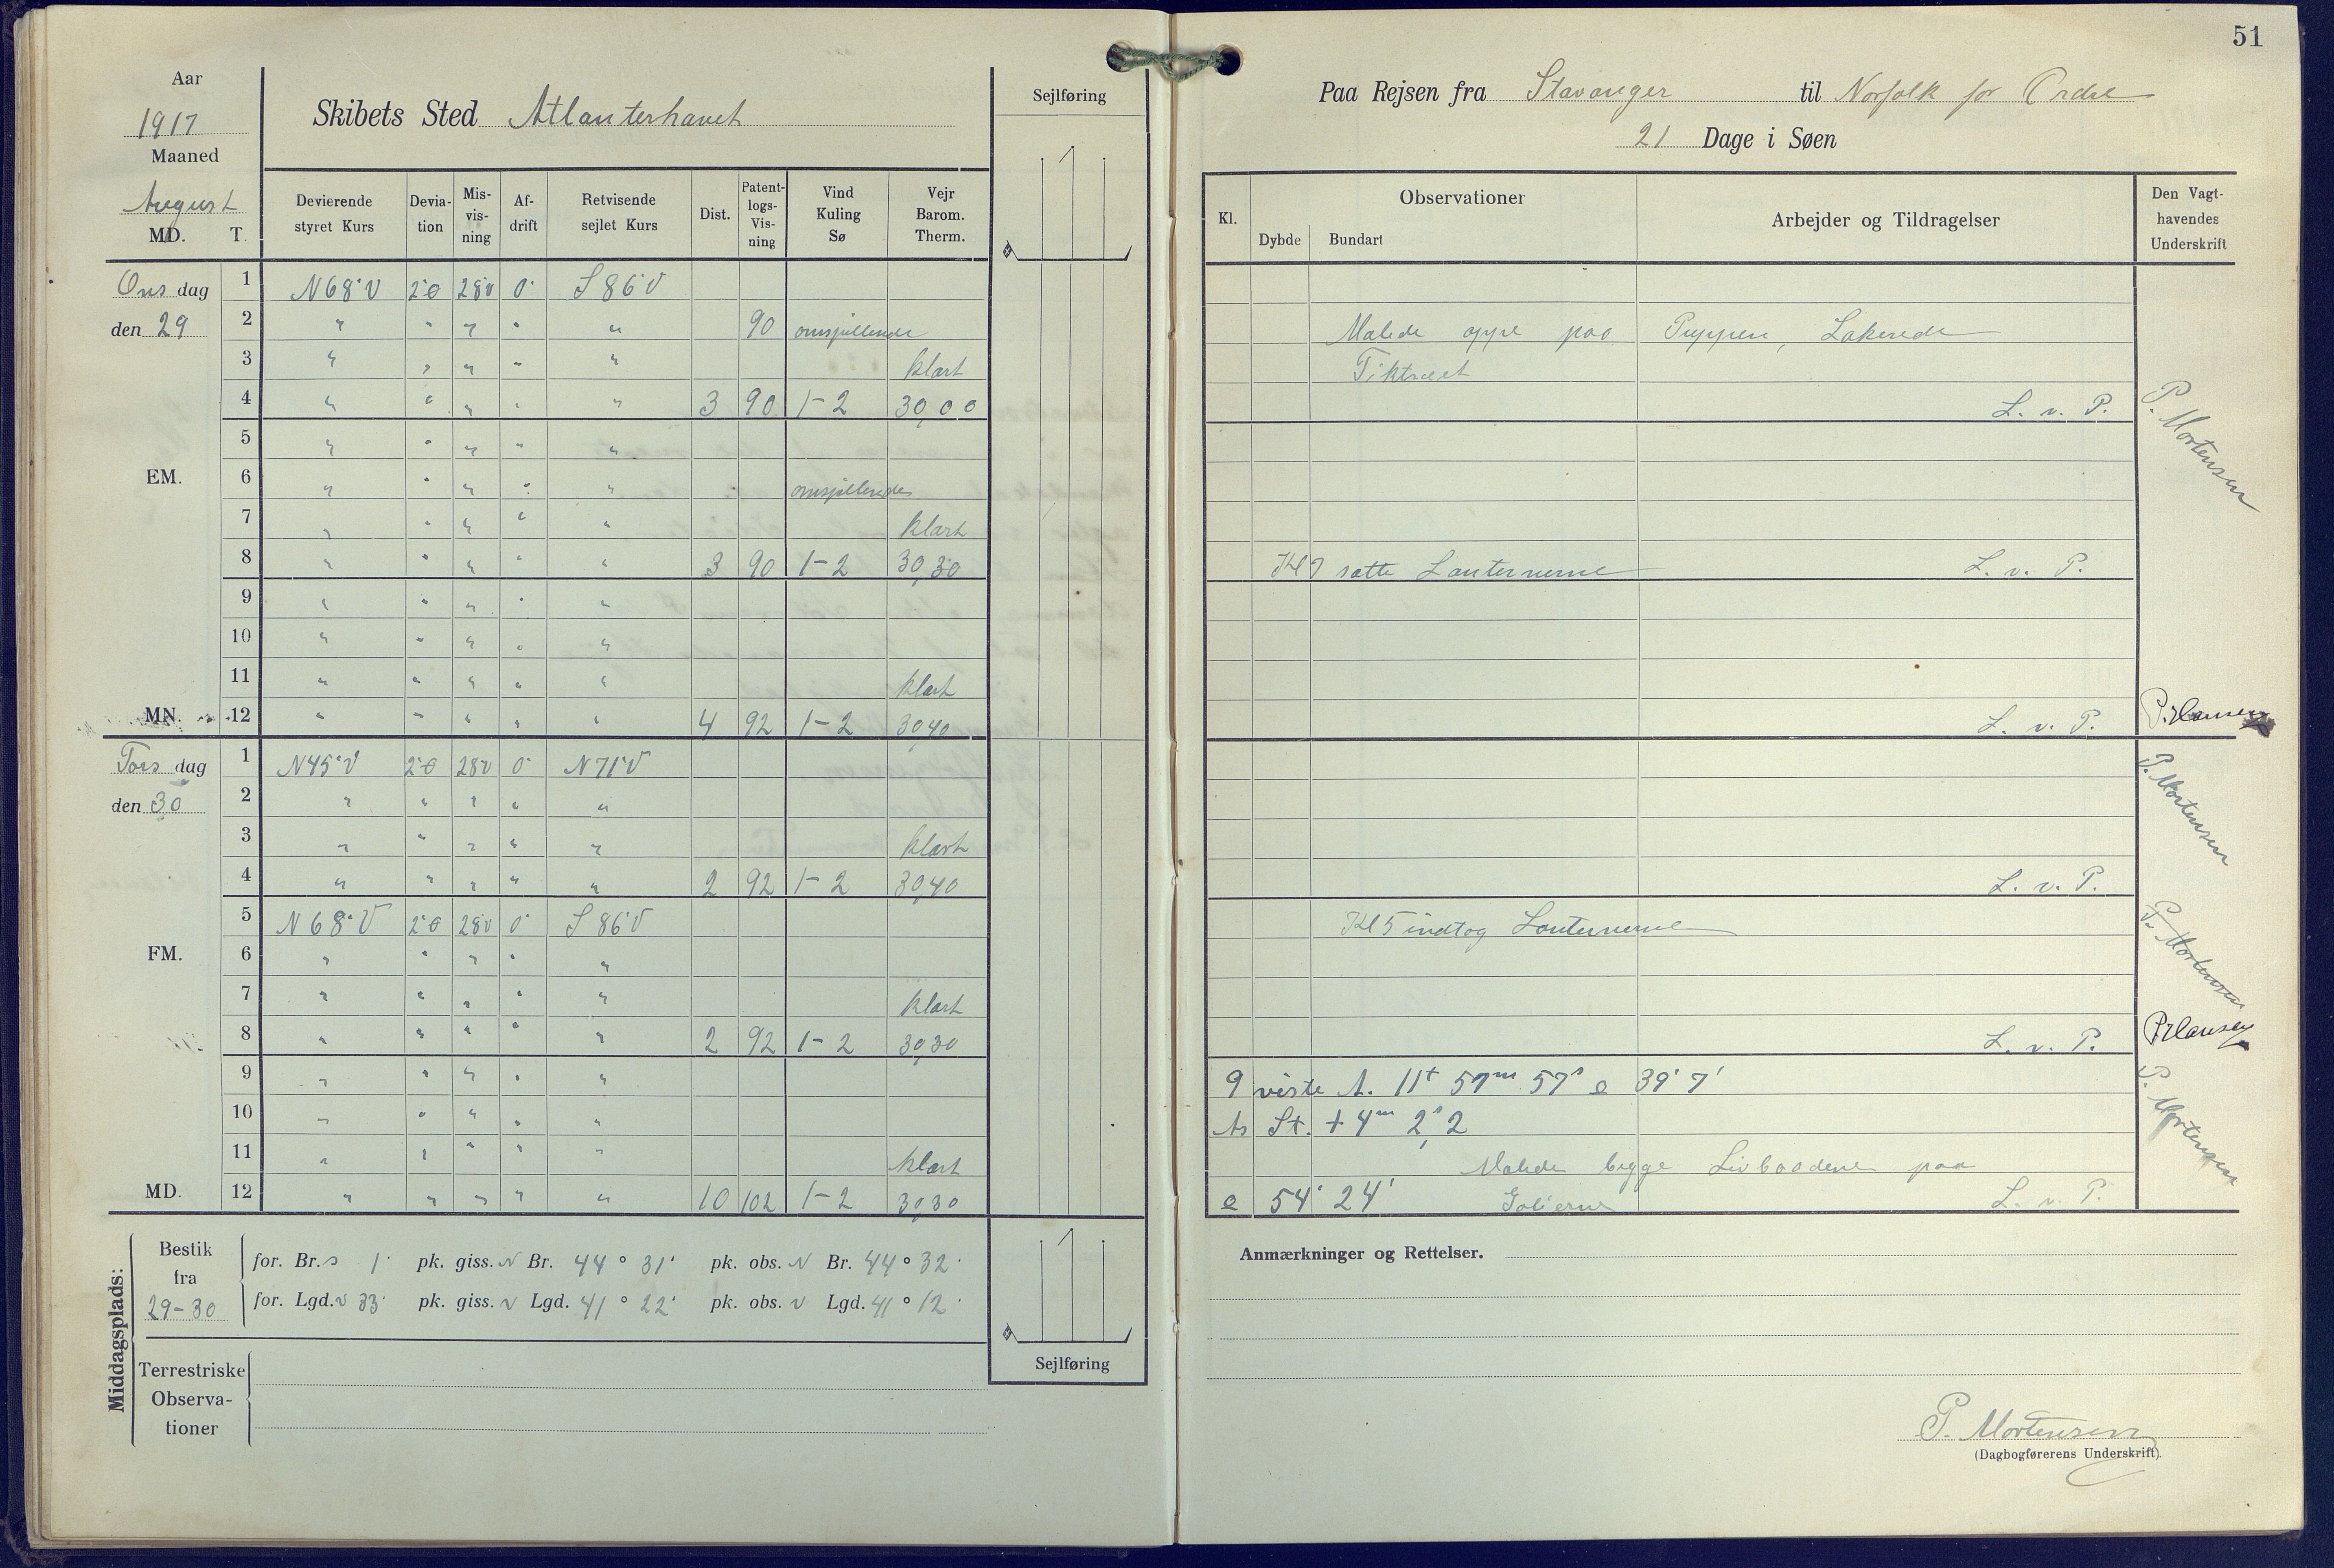 51
Aar
1917
Maaned
August
MD. T.
Skibets Sted Atlanterhavet
Sejlføring
Devierende styret Kurs
Devia-tion
Mis-vis-ning
Af-drift
Retvisende sejlet Kurs
Dist.
Patent-logs-Vis-ning
Vind Kuling Sø
Vejr Barom. Therm.
Onsdag
den 29
1 N68°V 2°Ø 28V 0° S86°V
2 " " " " " 90 omspillende
3 " " " " " klart
4 " " " " " 3 90 1-2 30,00
5 " " " " "
EM.
6 " " " " " omspillende
7 " " " " " klart
8 " " " " " 3 90 1-2 30,30
9 " " " " "
10 " " " " "
11 " " " " " klart
MN. 12 " " " " " 4 92 1-2 30,40
Torsdag
den 30
1 N45°V 2°Ø 28V 0° N71°V
2 " " " " "
3 " " " " " klart
4 " " " " " 2 92 1-2 30,40
5 N68°V 2°Ø 28V 0° S86°V
FM.
6 " " " " "
7 " " " " " klart
8 " " " " " 2 92 1-2 30,30
9 " " " " "
10 " " " " "
11 " " " " " klart
MD. 12 " " " " " 10 102 1-2 30,30
Middagsplads:
Bestik fra 29-30
for. Br. S 1' pk. giss. N Br. 44° 31' pk. obs. N Br. 44° 32'
for. Lgd. V 33' pk. giss. V Lgd. 41° 22' pk. obs. V Lgd. 41° 12'
Terrestriske
Observa-
tioner
Sejlføring
Paa Rejsen fra Stavanger til Norfolk for Ordre
21 Dage i Søen
Kl.
Observationer
Dybde Bundart
Arbejder og Tildragelser
Den Vagt-
havendes
Underskrift
Malede oppe paa Puppen, Lakerede
Tiktræet
L. v. P.
P. Mortensen
Kl 7 satte Lanternerne L. v. P.
L. v. P. P. Hansen
P. Mortensen
L. v. P.
Kl 5 indtog Lanternerne
P. Mortensen
L. v. P. P Hansen
9 viste A. 11t 57m 57s 39° 7'
St. + 4m 2,s2
P. Mortensen
Malede begge Livbaadene paa
54° 24' L. v. P.
Anmærkninger og Rettelser.
P. Mortensen
(Dagbogførerens Underskrift).